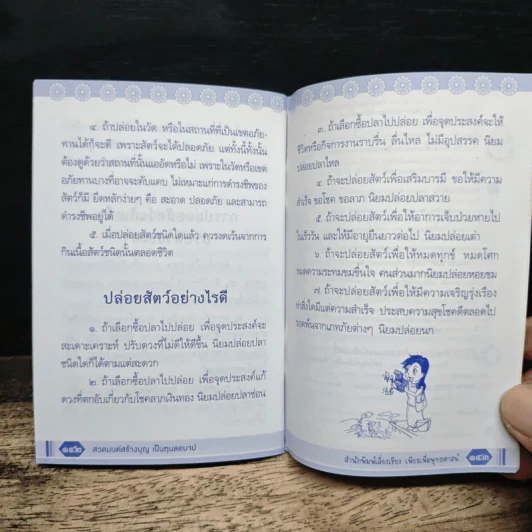 ๔. ถ้าปล่อยในวัด หรือในสถานที่ที่เป็นเขตอภัย-
ทานได้ก็จะดี เพราะสัตว์จะได้ปลอดภัย แต่ทั้งนี้ทั้งนั้น
ต้องดูด้วยว่าสถานที่นั้นแออัดหรือไม่ เพราะในวัดหรือเขต
อภัยทานบางที่อาจจะคับแคบ ไม่เหมาะแก่การดำรงชีพของ
สัตว์ก็มี ยึดหลักง่ายๆ คือ สะอาด ปลอดภัย และสามารถ
ดำรงชีพอยู่ได้
๕. เมื่อปล่อยสัตว์ชนิดใดแล้ว ควรงดเว้นจากการ
กินเนื้อสัตว์ชนิดนั้นตลอดชีวิต
ปล่อยสัตว์อย่างไรดี
๑. ถ้าเลือกซื้อปลาไปปล่อย เพื่อจุดประสงค์จะ
สะเดาะเคราะห์ ปรับดวงที่ไม่ดีให้ดีขึ้น นิยมปล่อยปลา
ชนิดใดก็ได้ตามแต่สะดวก
๒. ถ้าเลือกซื้อปลาไปปล่อย เพื่อจุดประสงค์แก้
ดวงที่ตกอับเกี่ยวกับโชคลาภเงินทอง นิยมปล่อยปลาช่อน
๑๔๒ สวดมนต์สร้างบุญ เป็นทุนลดบาป
๓. ถ้าเลือกซื้อปลาไปปล่อย เพื่อจุดประสงค์จะให้
ชีวิตหรือกิจการงานราบรื่น ลื่นไหล ไม่มีอุปสรรค นิยม
ปล่อยปลาไหล
๔. ถ้าจะปล่อยสัตว์เพื่อเสริมบารมี ขอให้มีความ
สำเร็จ ขอโชค ขอลาภ นิยมปล่อยปลาสวาย
๕. ถ้าจะปล่อยสัตว์เพื่อให้อาการเจ็บป่วยหายไป
ในเร็ววัน และให้มีอายุยืนยาวต่อไป นิยมปล่อยเต่า
๖. ถ้าจะปล่อยสัตว์เพื่อให้หมดทุกข์ หมดโศก
หมดความระทมขมขื่นใจ คนส่วนมากนิยมปล่อยหอยขม
๗. ถ้าจะปล่อยสัตว์เพื่อให้มีความเจริญรุ่งเรือง
ทำสิ่งใดมีแต่ความสำเร็จ ประสบความสุขโชคดีตลอดไป
รอดพ้นจากเภทภัยต่างๆ นิยมปล่อยนก
สำนักพิมพ์เลี่ยงเชียง เพียรเพื่อพุทธศาสน์ ๑๔๓